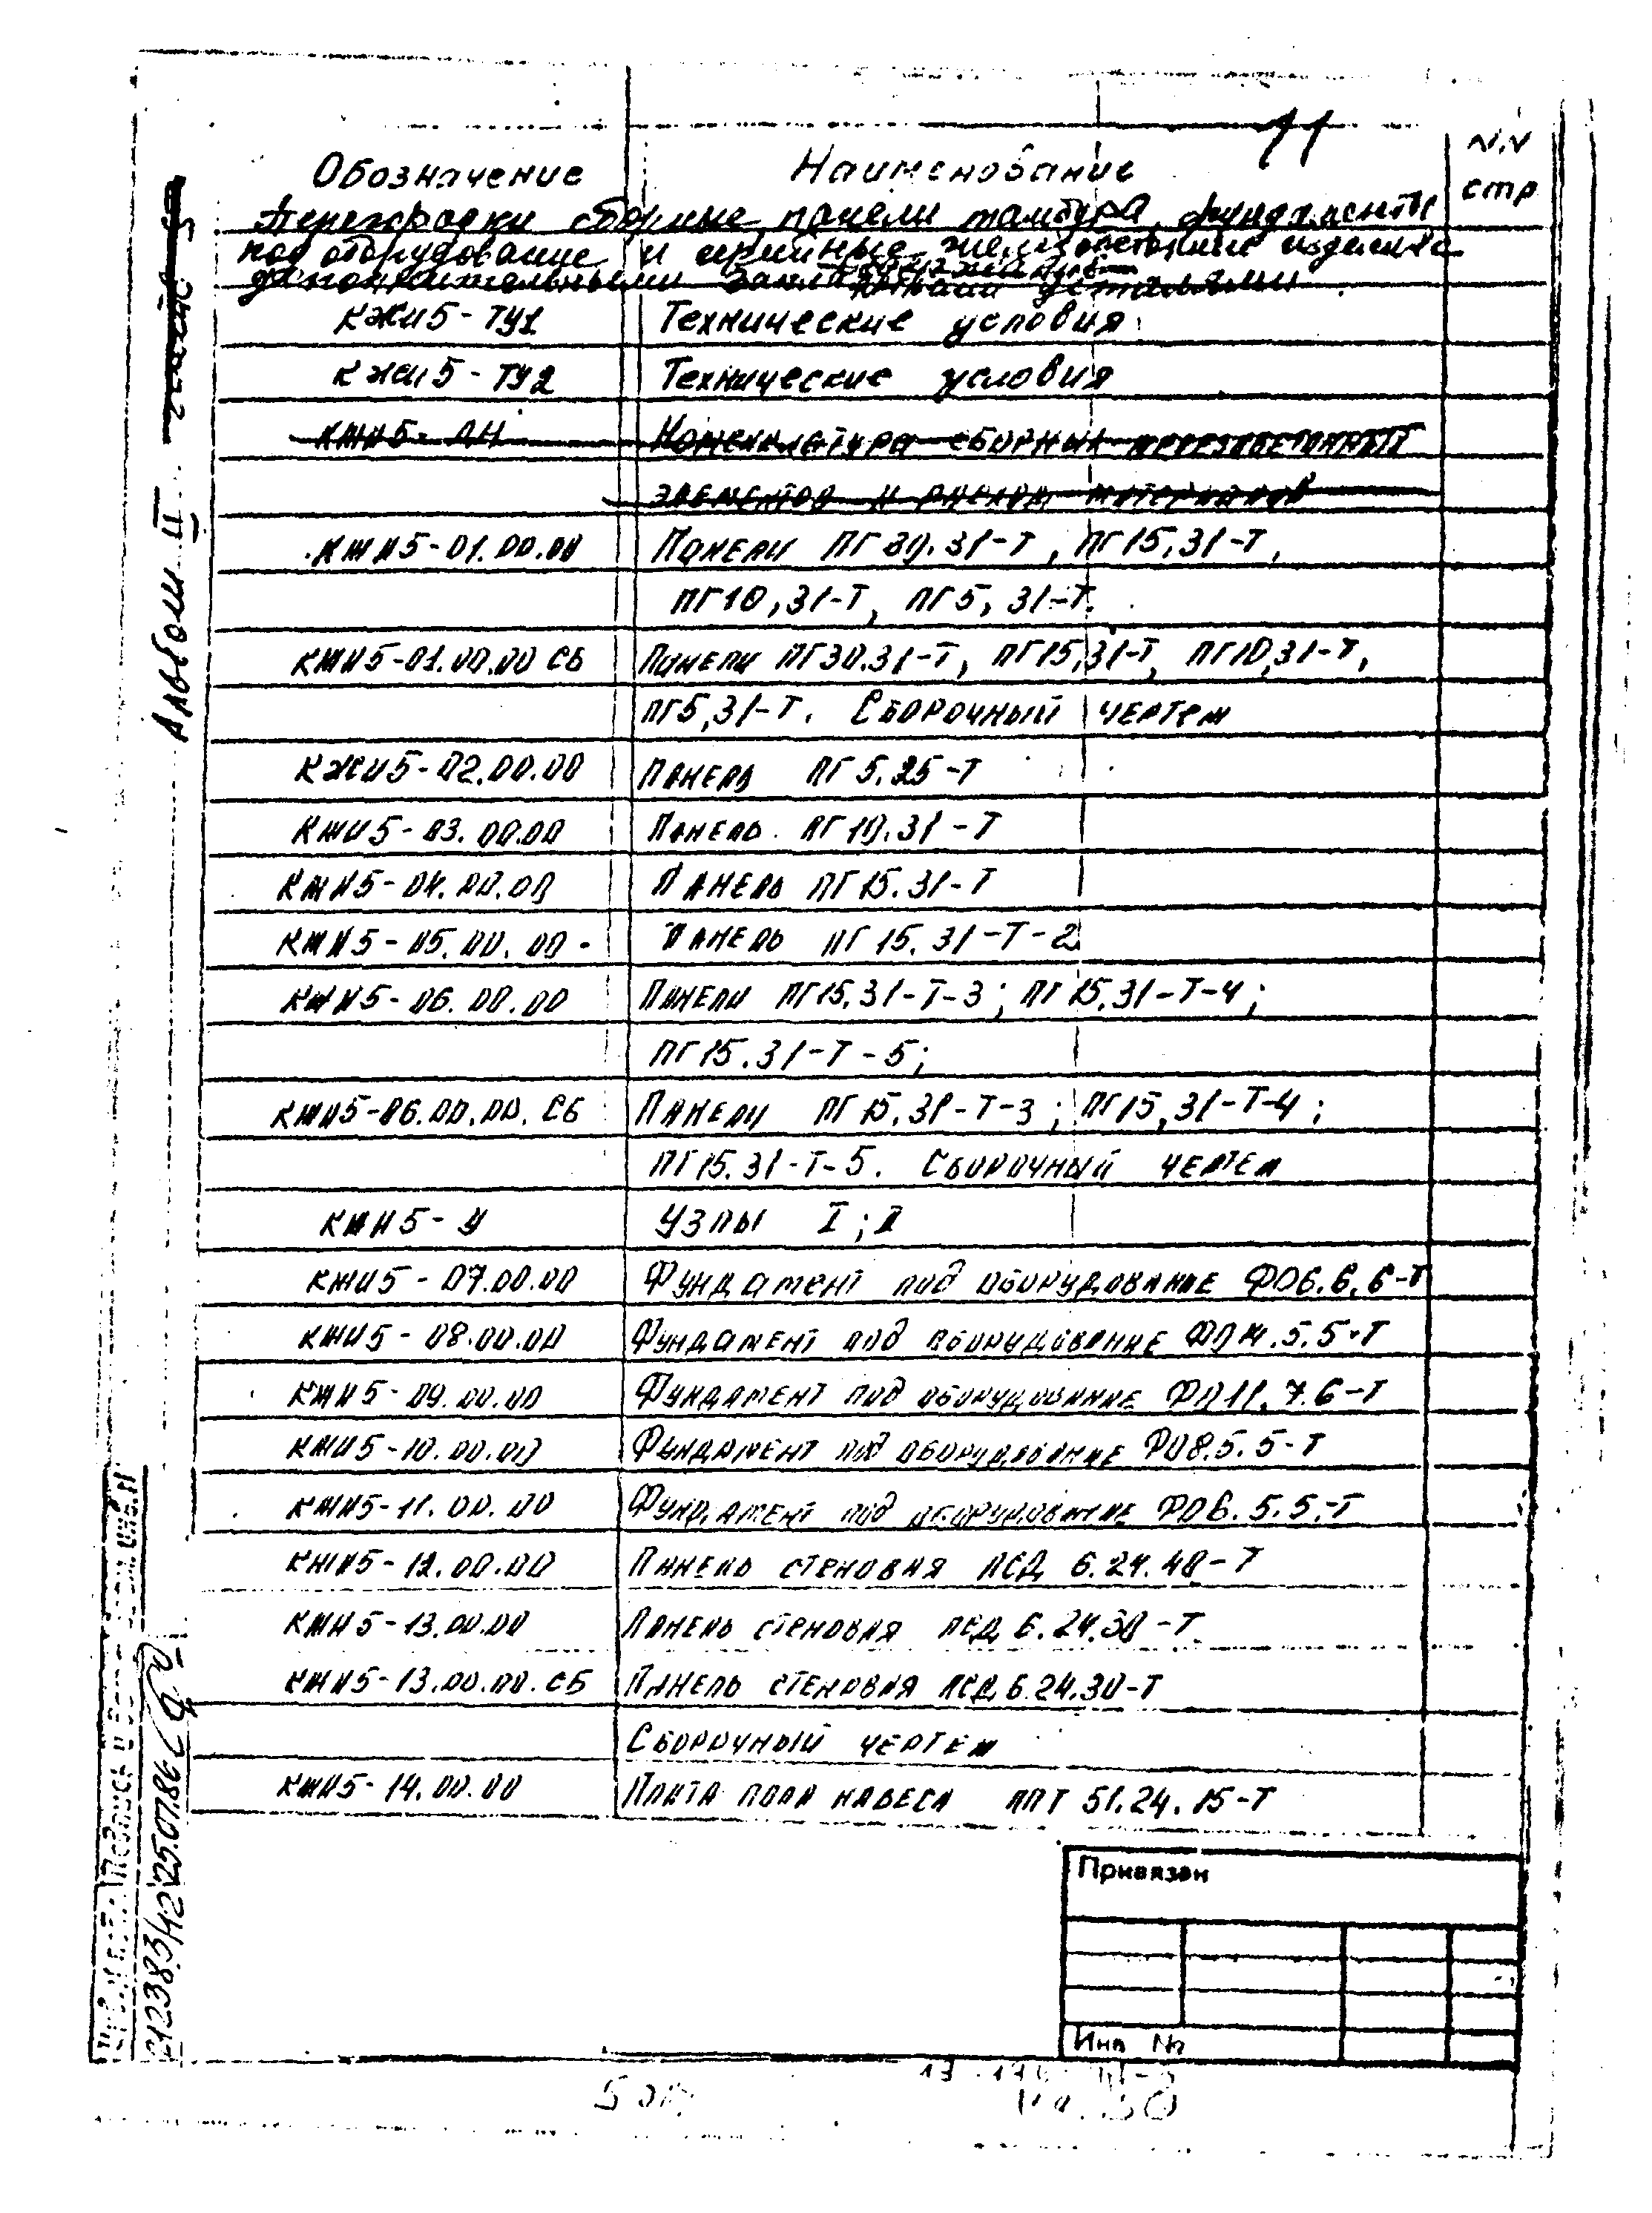 11
Обозначение Наименование NN стр
Перегородки сборные, панели тамбура, фундаменты
под оборудование и серийные железобетонные изделия с
дополнительными закладными деталями
КЖИ5-ТУ1 Технические условия
КЖИ5-ТУ2 Технические условия
КЖИ5- Номенклатура сборных железобетонных
элементов и расход материалов
КЖИ5-01.00.00 Панели ПГ30.31-Т, ПГ15,31-Т,
ПГ10,31-Т, ПГ5,31-Т.
КЖИ5-01.00.00 СБ Панели ПГ30.31-Т, ПГ15,31-Т, ПГ10,31-Т,
ПГ5,31-Т. Сборочный чертеж
КЖИ5-02.00.00 Панель ПГ5.25-Т
КЖИ5-03.00.00 Панель ПГ10.31-Т
КЖИ5-04.00.00 Панель ПГ15.31-Т
КЖИ5-05.00.00- Панель ПГ15.31-Т-2
КЖИ5-06.00.00 Панели ПГ15,31-Т-3; ПГ15,31-Т-4;
ПГ15.31-Т-5;
КЖИ5-06.00.00.СБ Панели ПГ15.31-Т-3; ПГ15,31-Т-4;
ПГ15.31-Т-5. Сборочный чертеж
КЖИ5-У Узлы I; II
КЖИ5-07.00.00 Фундамент под оборудование ФО6.6.6-Т
КЖИ5-08.00.00 Фундамент под оборудование .5.5-Т
КЖИ5-09.00.00 Фундамент под оборудование ФО11.7.6-Т
КЖИ5-10.00.00 Фундамент под оборудование ФО8.5.5-Т
КЖИ5-11.00.00 Фундамент под оборудование ФО6.5.5-Т
КЖИ5-12.00.00 Панель стеновая ПСД 6.24.40-Т
КЖИ5-13.00.00 Панель стеновая ПСД 6.24.30-Т
КЖИ5-13.00.00.СБ Панель стеновая ПСД 6.24.30-Т
Сборочный чертеж
КЖИ5-14.00.00 Плита пола навеса ППТ 51.24.15-Т
Привязан
Инв №
Альбом II
Подпись и
25.07.86